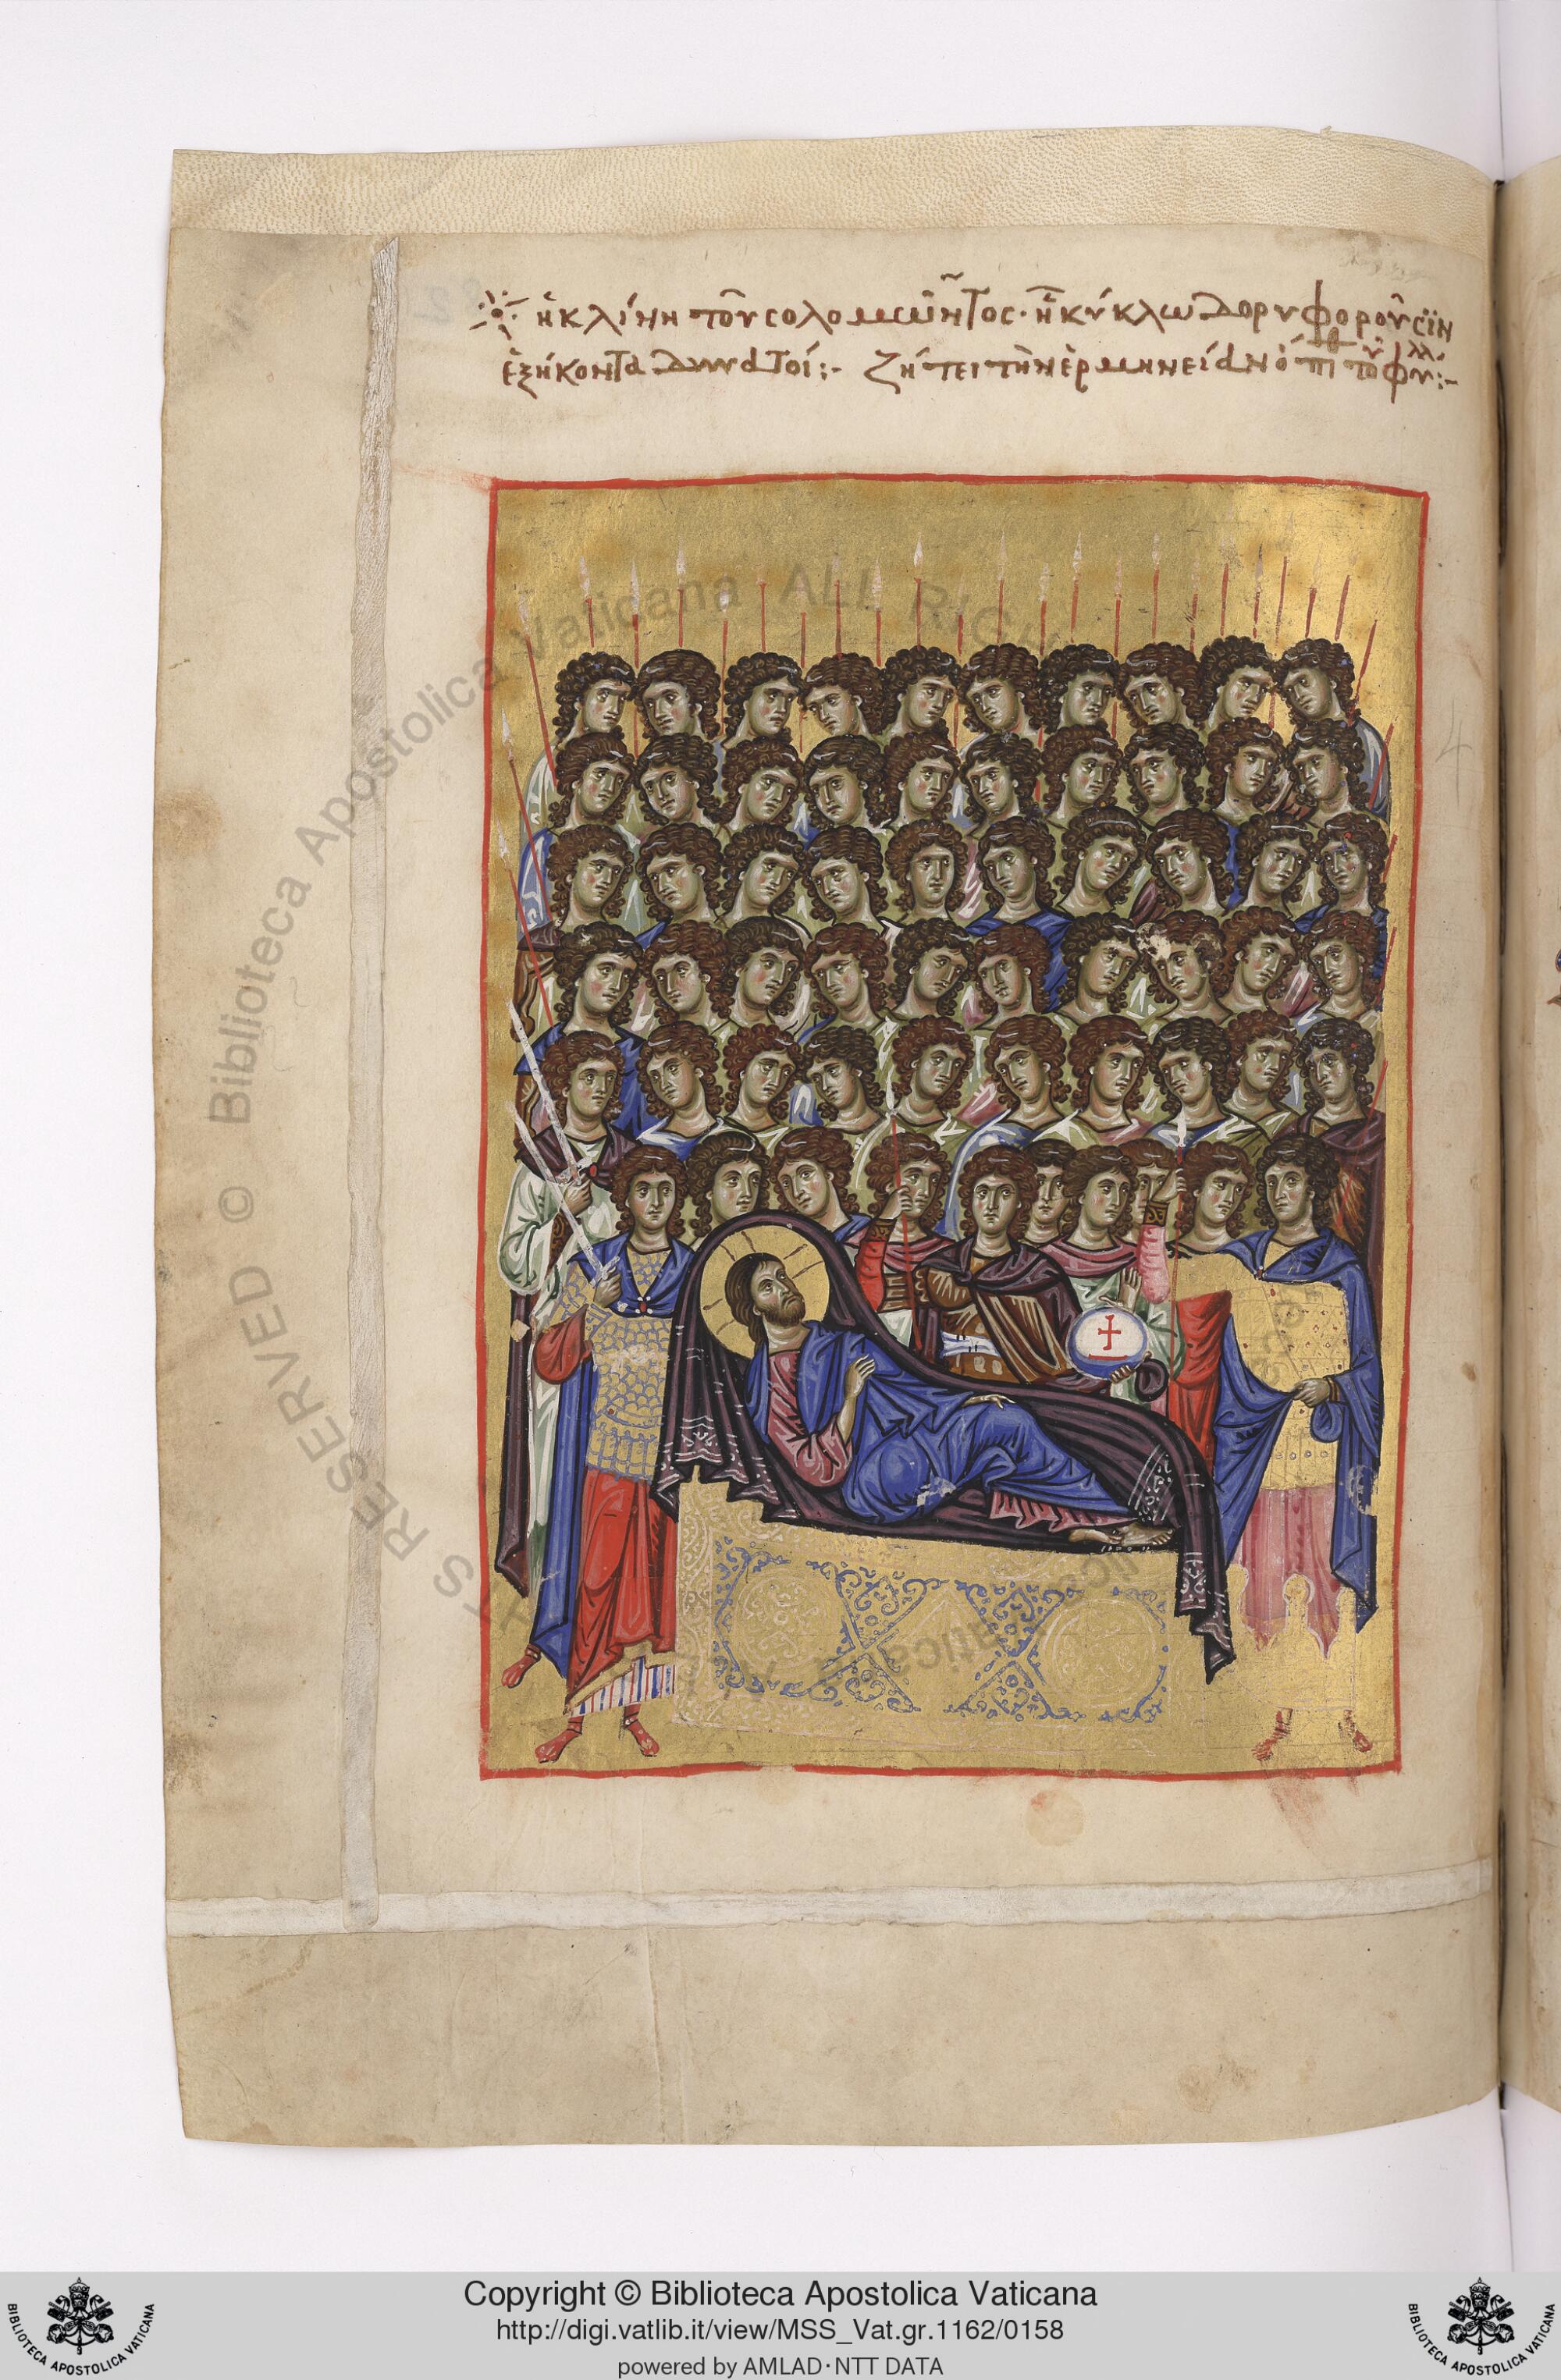 ἡ κλίνη τοῦ σολομῶντος· ἣν κύκλω δορυφοροῦσϊν
ἑξήκοντα δυνατοί:- Ζήτει τὴν ἑρμηνείαν
Biblioteca Apostolica Vaticana ALL RIGHTS RESERVED ©
Copyright © Biblioteca Apostolica Vaticana
http://digi.vatlib.it/view/MSS_Vat.gr.1162/0158
powered by AMLAD·NTT DATA
BIBLIOTECA APOSTOLICA VATICANA
BIBLIOTECA APOSTOLICA VATICANA